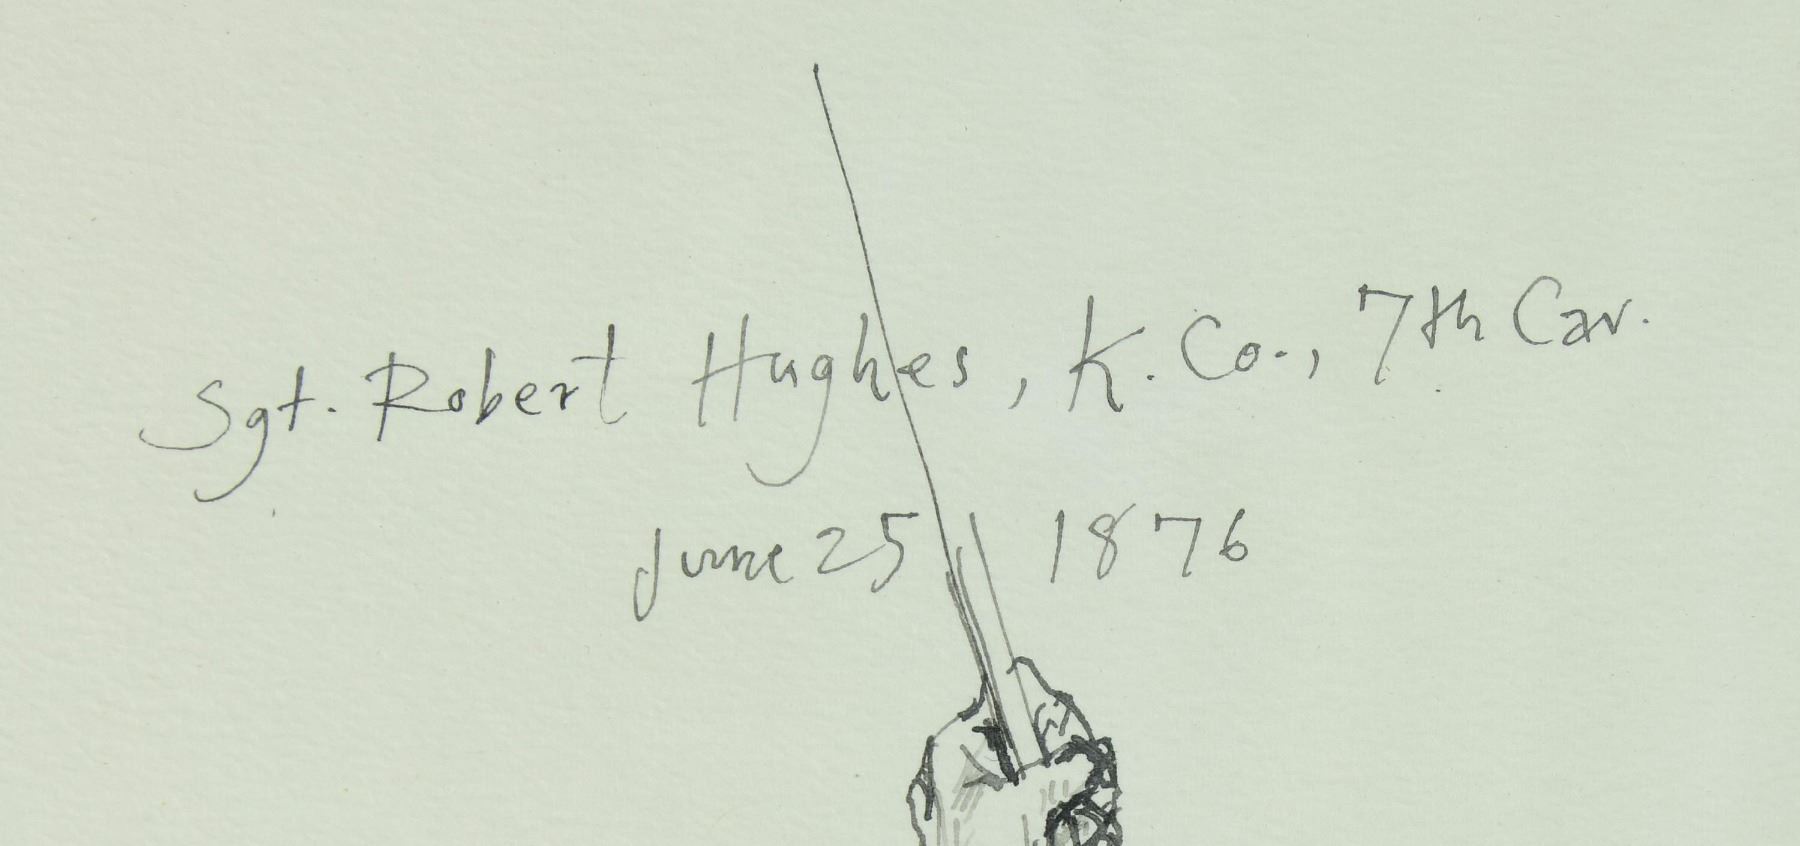 Sgt. Robert Hughes, K. Co., 7th Cav.
June 25 1876